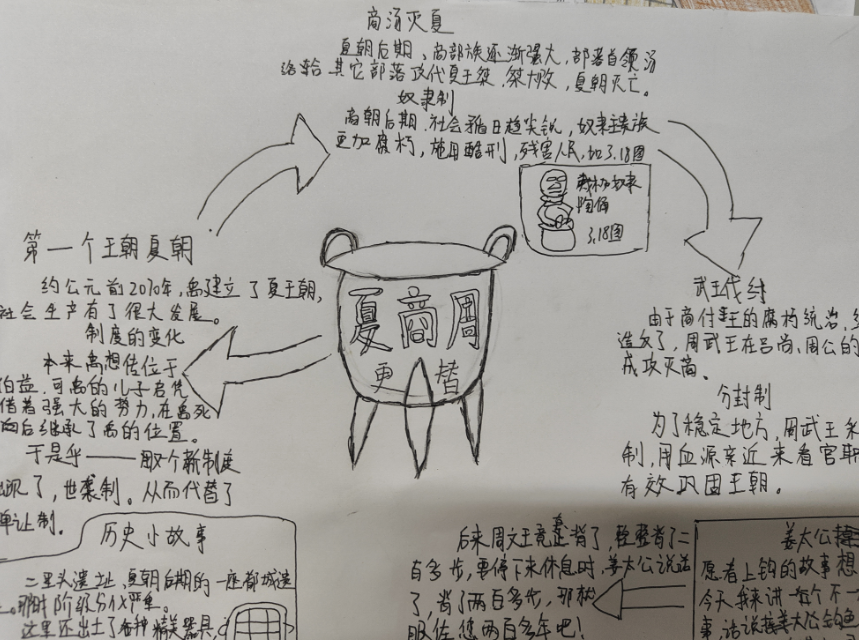 商汤灭夏
夏朝后期、商部族逐渐强大，部落首领汤
给 其它部落攻伐夏王桀.桀大败，夏朝灭亡。
奴隶制
商朝后期.社会矛盾日趋尖锐，奴隶主贵族
更加腐朽，施用酷刑，残害人民，如3.18图
奴隶
陶俑
3.18图
第一个王朝夏朝
约公元前2070年，禹建立了夏王朝，
社会生产有了很大发展。
制度的变化
本来禹想传位于
伯益.可禹的儿子启凭
借着强大的势力，在禹死
向后继承了禹的位置。
于是乎——那个新制度
出现了，世袭制。从而代替了
禅让制。
夏商周
更替
武王伐纣
由于商付王的腐朽统治，
造反了，周武王在吕尚、周公的
成攻灭商。
分封制
为了稳定地方，周武王采
制，用血源亲近来看官职
有效巩固王朝。
历史小故事
二里头遗址、夏朝后期的一座都城遗
。那时阶级分化严重。
这里还出土了各种精美器具
后来周文王竟背了，背了二
百多步，要停下来休息时，姜太公说
了，背了两百多步，那我
服佐您两百多年吧！
姜太公
愿者上钩的故事想
今天我来讲一个不一
事.话说姜太公金钓鱼